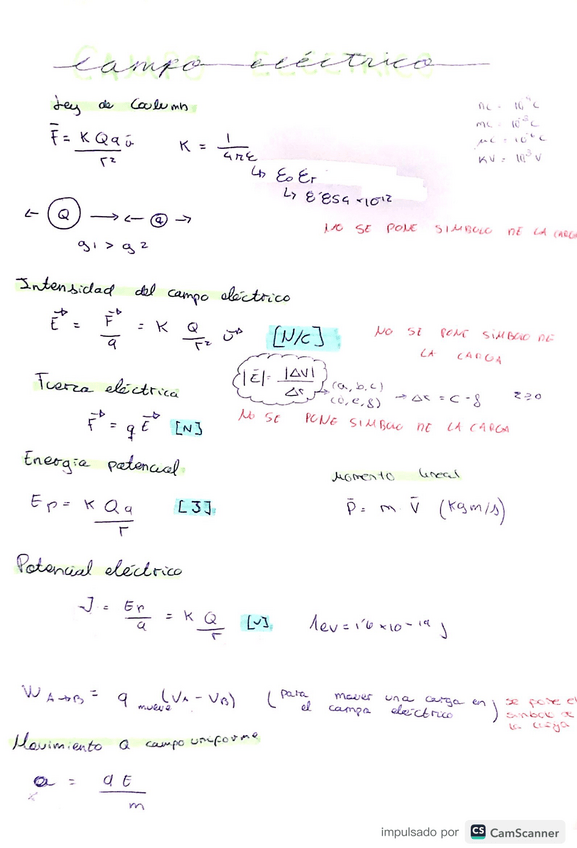 CAMPO ELÉCTRICO
campo eléctrico
Ley de Coulumb
F̄ = K Q q ū / r²
K = 1 / 4πε
↳ ε₀ εᵣ
↳ 8'854 × 10⁻¹²
KV = 10³ V
← Q → ← q →
q1 > q2
NO SE PONE SIMBOLO DE LA CARGA
Intensidad del campo eléctrico
E⃗ = F⃗ / q = K Q / r² u⃗ [N/C]
NO SE PONE SIMBOLO DE
LA CARGA
|Ē| = |ΔV| / Δr
(a, b, c)
Fuerza eléctrica
F⃗ = q E⃗ [N]
NO SE PONE SIMBOLO DE LA CARGA
Energía potencial
Ep = K Q q / r [J]
Momento lineal
p̄ = m · v̄ (kgm/s)
Potencial eléctrico
= Ep / q = K Q / r [V]
1ev = 1'6 × 10⁻¹⁹ J
W A→B = q mueve (VA - VB) (para mover una carga en el campo eléctrico)
se pone el
simbolo de
la carga
Movimiento a campo uniforme
a = q E / m
impulsado por CS CamScanner